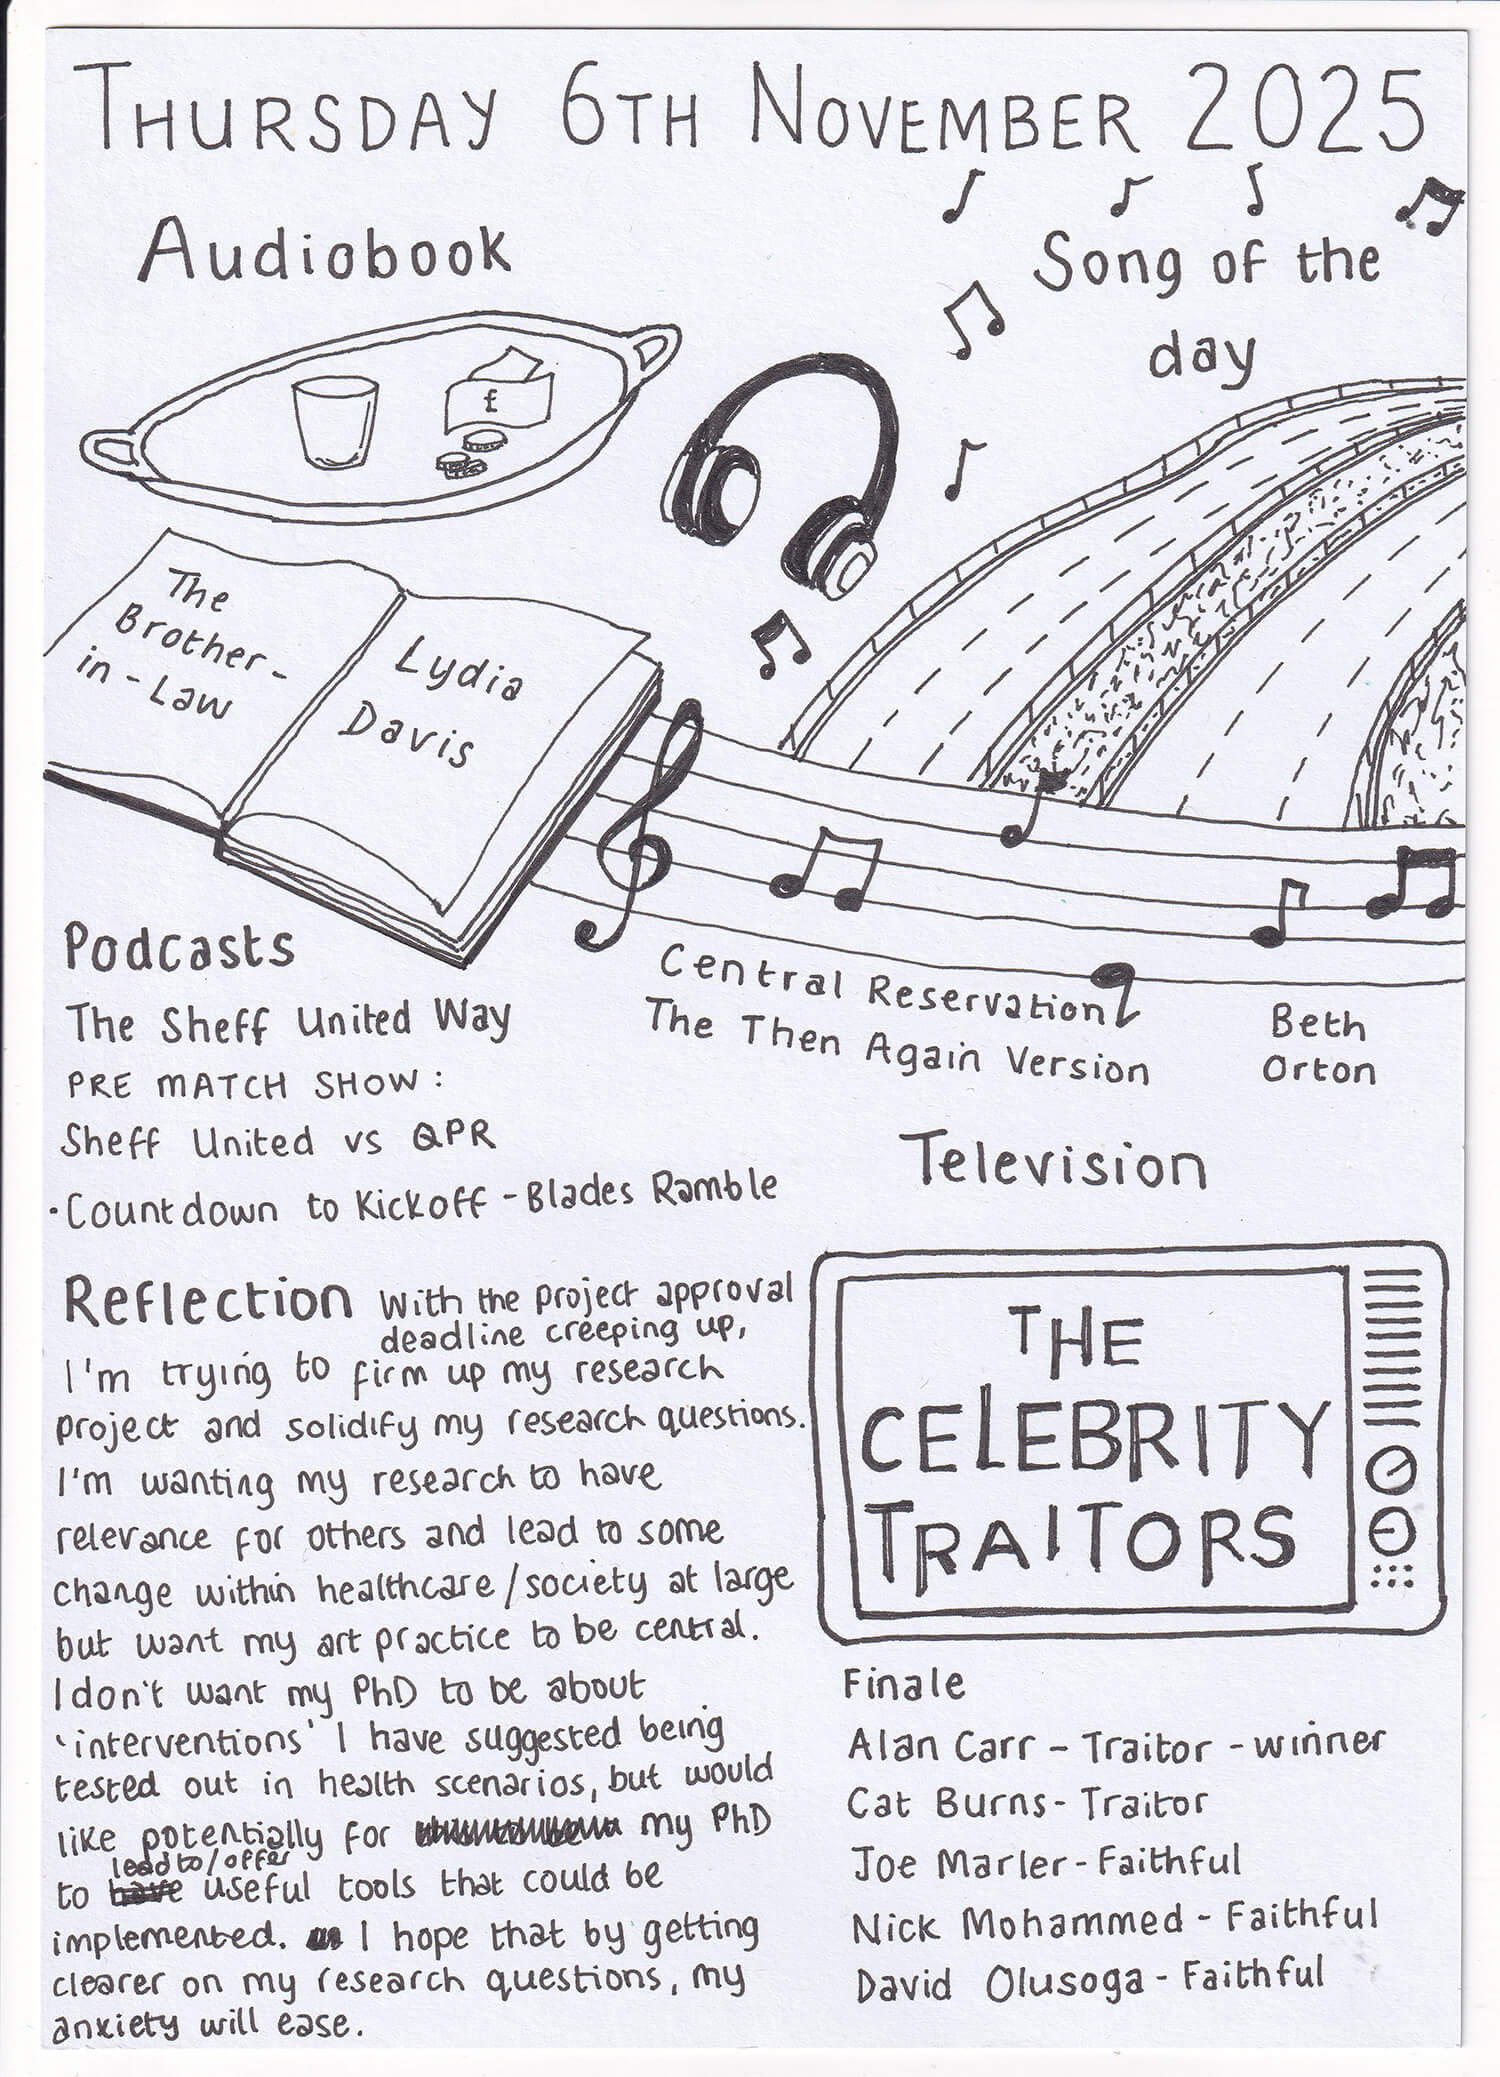 THURSDAY 6TH NOVEMBER 2025
Audiobook
£
The
Brother-
in-Law
Lydia
Davis
Song of the
day
Central Reservation
The Then Again Version
Beth
Orton
Podcasts
The Sheff United Way
PRE MATCH SHOW:
Sheff United vs QPR
·Countdown to Kickoff - Blades Ramble
Reflection With the project approval
deadline creeping up,
I'm trying to firm up my research
project and solidify my research questions.
I'm wanting my research to have
relevance for others and lead to some
change within healthcare/society at large
but want my art practice to be central.
I don't want my PhD to be about
'interventions' I have suggested being
tested out in health scenarios, but would
like potentially for my PhD
lead to/offer
to have useful tools that could be
implemented. I hope that by getting
clearer on my research questions, my
anxiety will ease.
Television
THE
CELEBRITY
TRAITORS
Finale
Alan Carr - Traitor - winner
Cat Burns - Traitor
Joe Marler - Faithful
Nick Mohammed - Faithful
David Olusoga - Faithful